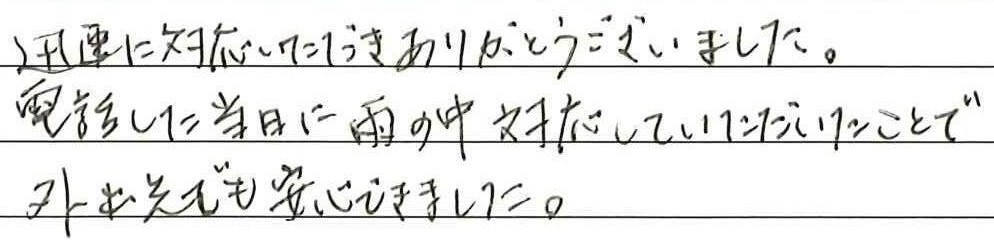 迅速に対応いただきありがとうございました。
電話した当日に雨の中対応していただいたことで
外出先でも安心できました。